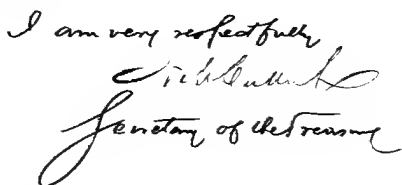 I am very respectfully
Secretary of the Treasury